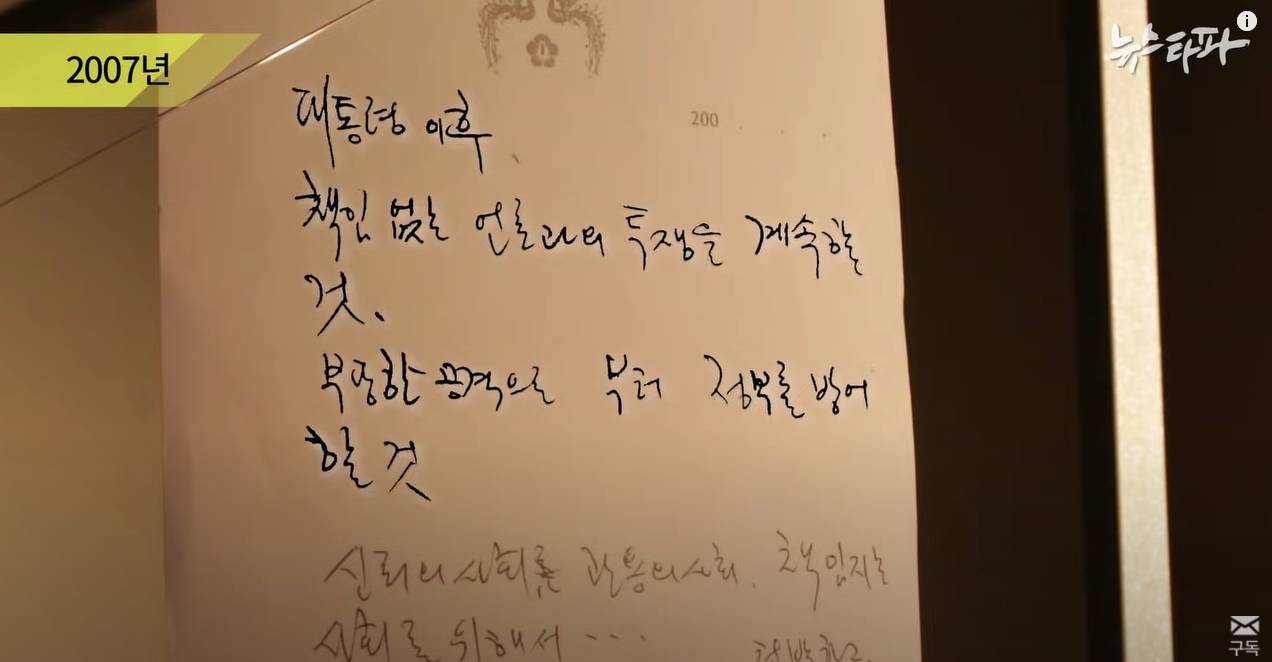 2007년
뉴스타파
200 . . .
대통령 이후
책임 없는 언론과의 투쟁을 계속할
것.
부당한 공격으로 부터 정부를 방어
할 것
신뢰의 사회를 관용의 사회. 책임지는
사회를 위해서 ...
구독